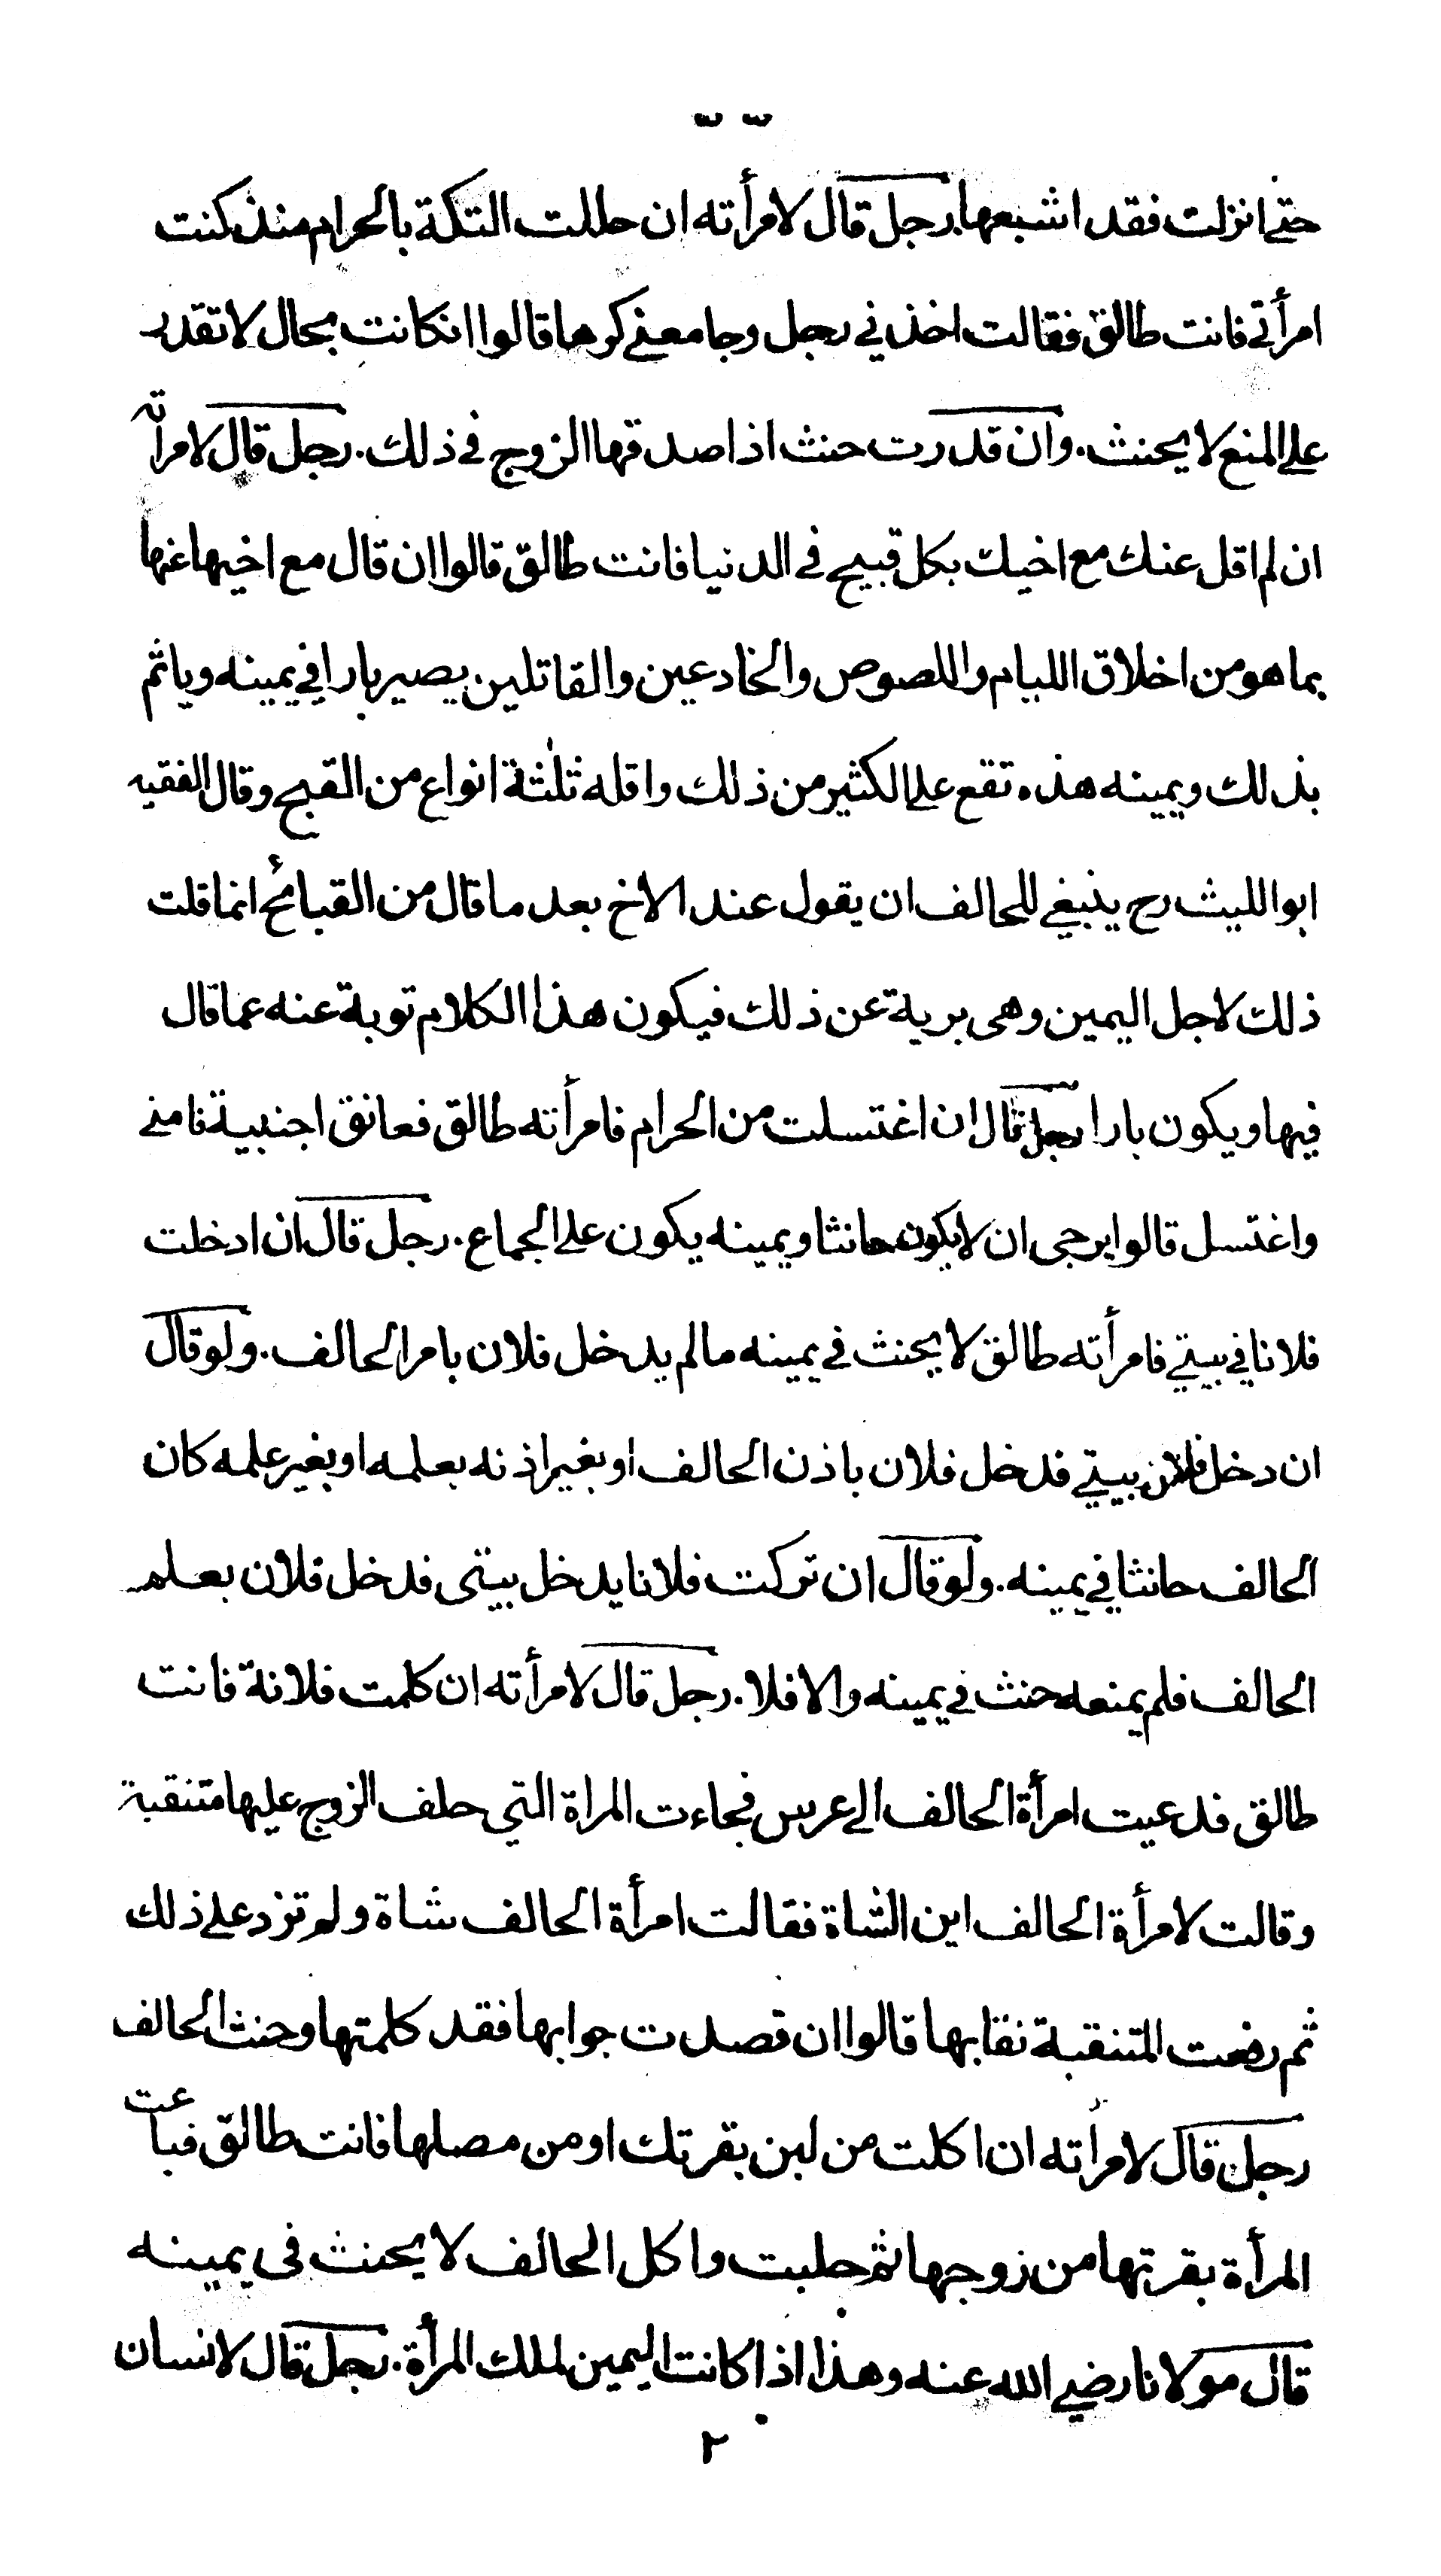 حتے انزلت فقد اشبعها. رجل قال لامرأته ان حللت التكة بالحرام منذ كنت
امرأتے فانت طالق فقالت اخذنے رجل وجامعنے كرها قالوا انكانت بحال لا تقدر
علے المنع لا يحنث. وان قدرت حنث اذا صدقها الزوج فے ذلك. رجل قال لامرأته
ان لم اقل عنك مع اخيك بكل قبيح فے الدنيا فانت طالق قالوا ان قال مع اخيها عنها
بما هو من اخلاق الليام واللصوص والخادعين والقاتلين يصير بارا فے يمينه وياثم
بذلك ويمينه هذه تقع علے الكثير من ذلك واقله ثلٰثة انواع من القبح وقال الفقيه
ابوالليث رح ينبغے للحالف ان يقول عند الاخ بعد ما قال من القبائح انما قلت
ذلك لاجل اليمين وهى برية عن ذلك فيكون هذا الكلام توبة عنه عما قال
فيها ويكون بارا رجل قال ان اغتسلت من الحرام فامرأته طالق فعانق اجنبية فامنے
واغتسل قالوا يرجى ان لا يكون حانثا ويمينه يكون علے الجماع. رجل قال ان ادخلت
فلانا فے بيتے فامرأته طالق لا يحنث فے يمينه ما لم يدخل فلان بامر الحالف. ولو قال
ان دخل فلان بيتے فدخل فلان باذن الحالف او بغير اذنه بعلمه او بغير علمه كان
الحالف حانثا فے يمينه. ولو قال ان تركت فلانا يدخل بيتى فدخل فلان بعلم
الحالف فلم يمنعه حنث فے يمينه والا فلا. رجل قال لامرأته ان كلمت فلانة فانت
طالق فدعيت امرأة الحالف الے عرس فجاءت المراة التي حلف الزوج عليها متنقبة
وقالت لامرأة الحالف اين الشاة فقالت امرأة الحالف شاة ولم تزد علے ذلك
ثم رفعت المتنقبة نقابها قالوا ان قصدت جوابها فقد كلمتها وحنث الحالف
رجل قال لامرأته ان اكلت من لبن بقرتك او من مصلها فانت طالق فباعت
المرأة بقرتها من زوجها ثم حلبت واكل الحالف لا يحنث فى يمينه
قال مولانا رضے الله عنه وهذا اذا كانت اليمين لملك المرأة. رجل قال لانسان
٢